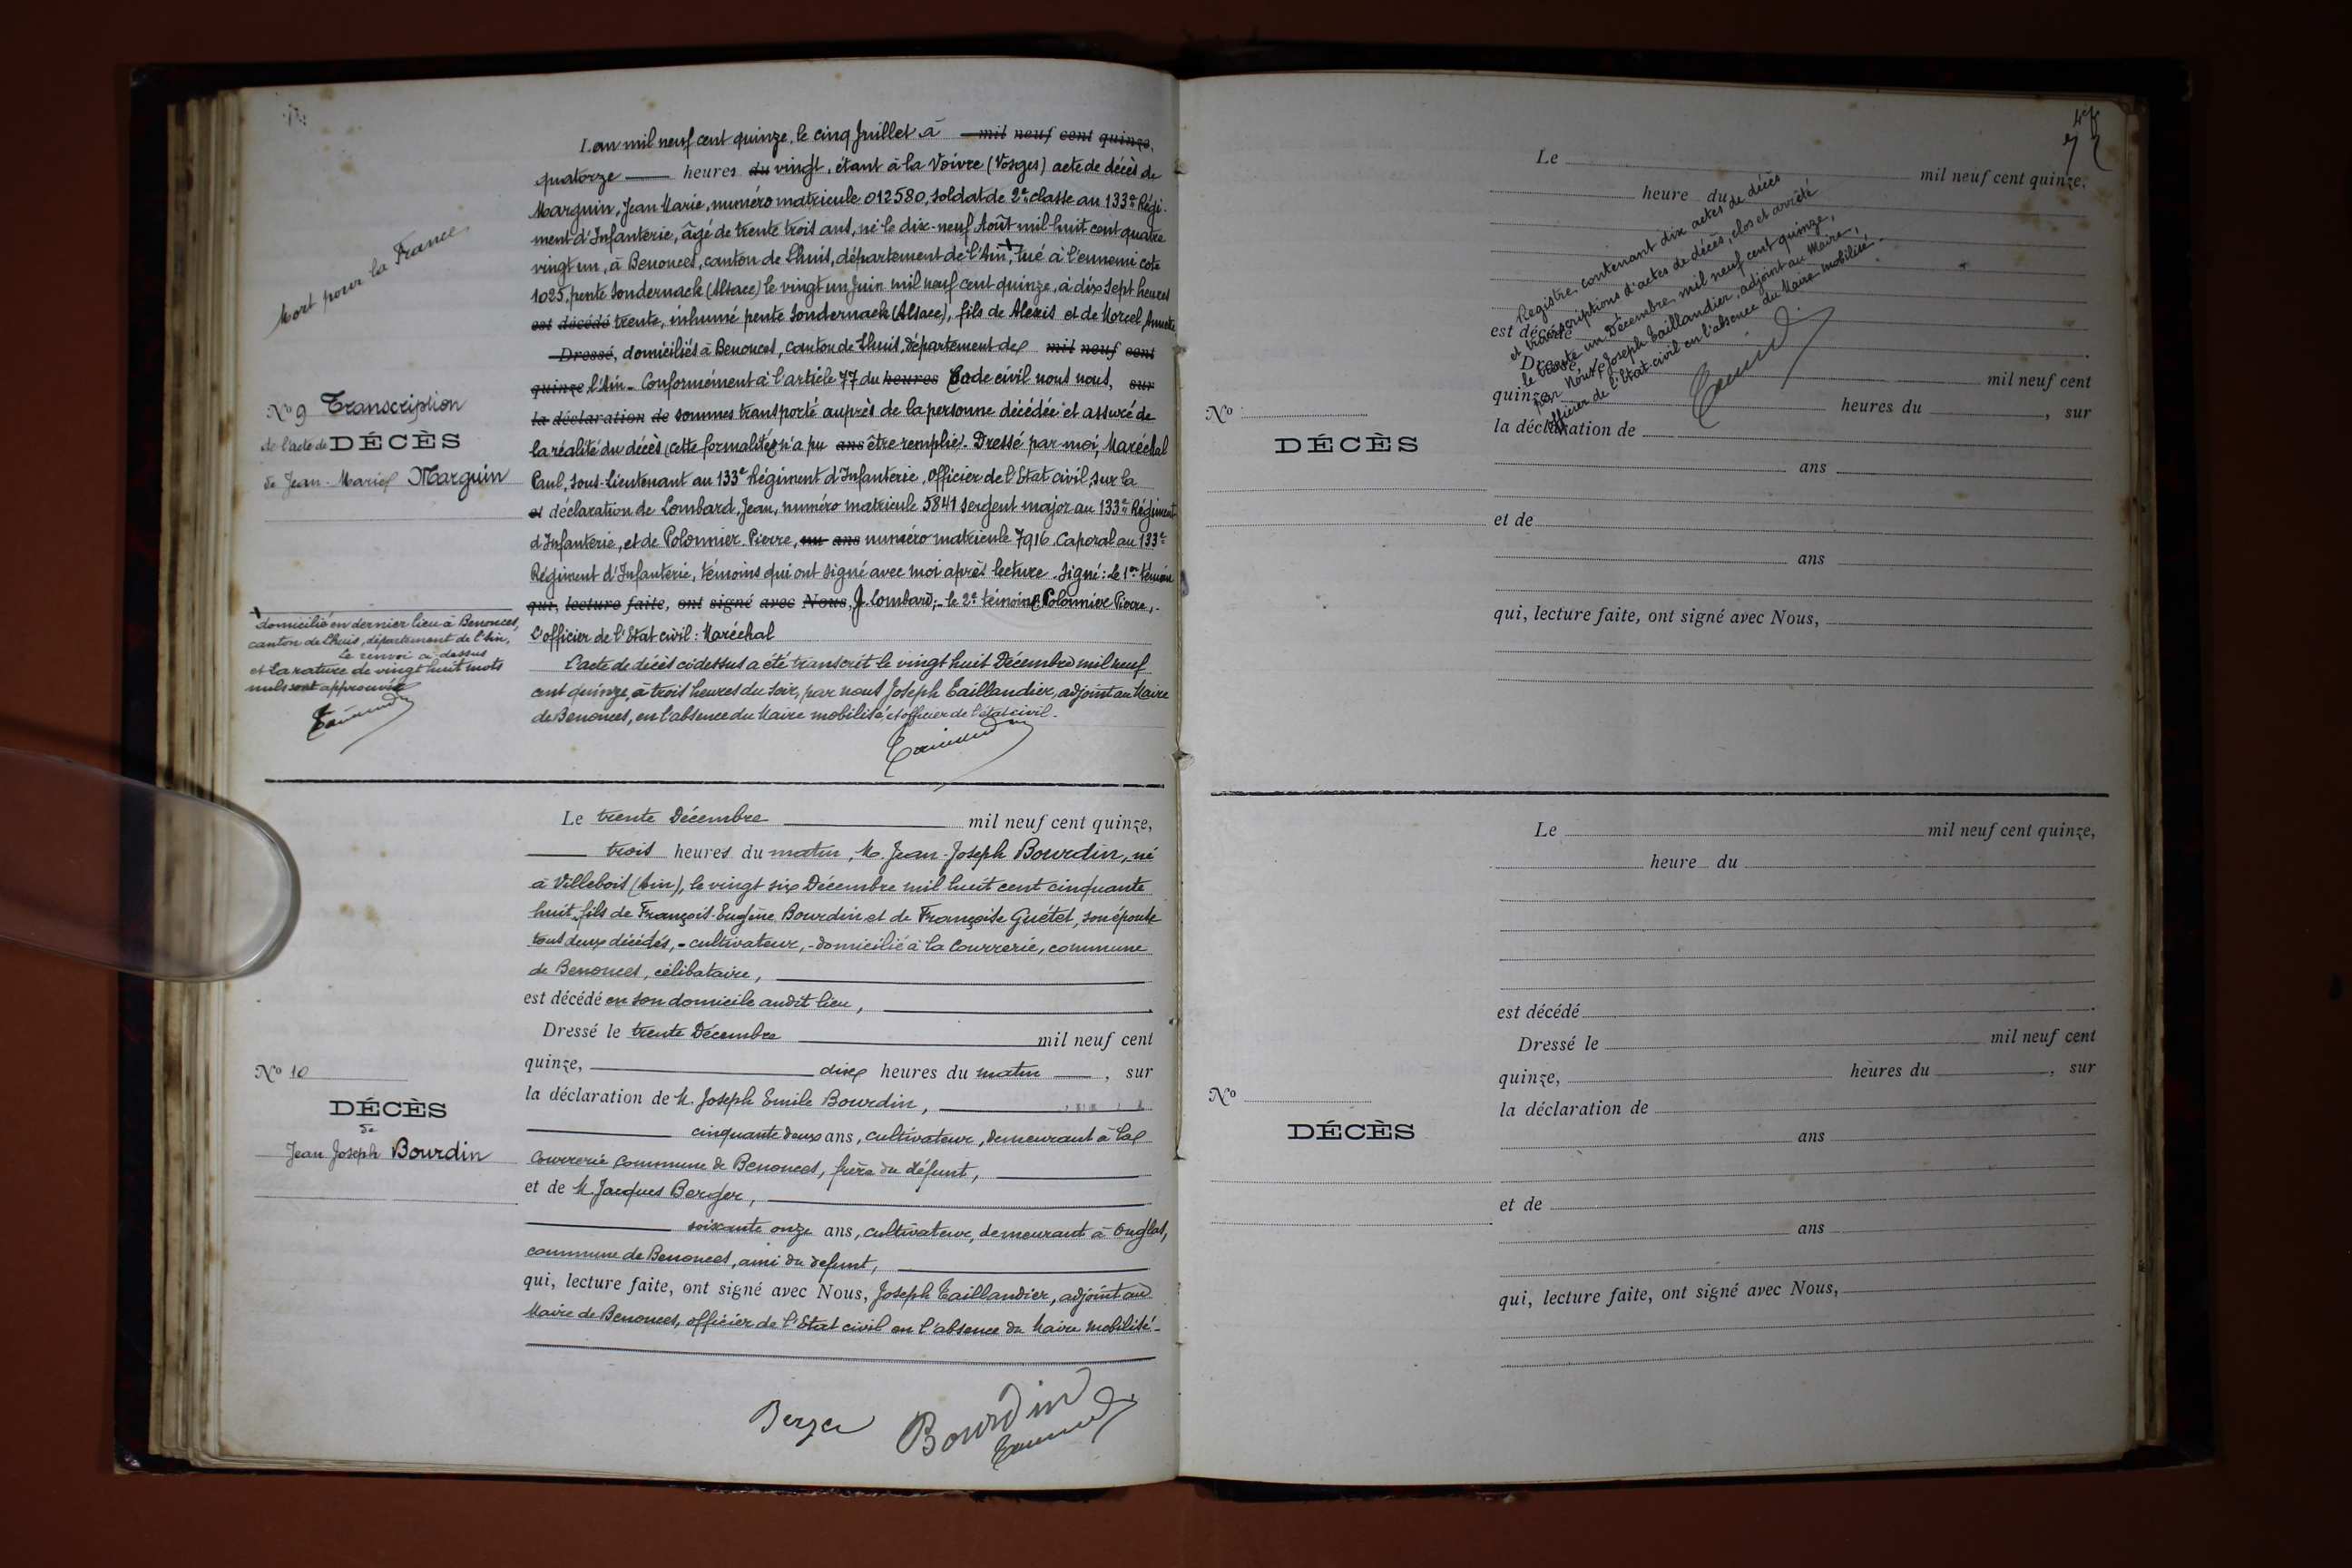 Mort pour la France
Nº 9 Transcription
de l'acte de DÉCÈS
de Jean-Marie Marguin
domicilié en dernier lieu à Benonces,
canton de Lhuis, département de l'Ain,
Le renvoi ci-dessus
et la rature de vingt huit mots
nuls sont approuvés
L'an mil neuf cent quinze, le cinq Juillet à mil neuf cent quinze,
quatorze heures du vingt, étant à la Voivre (Vosges) acte de décès de
Marguin, Jean Marie, numéro matricule 012580, soldat de 2e classe au 133e Régi-
ment d'Infanterie, âgé de trente trois ans, né le dix-neuf Août mil huit cent quatre
vingt un, à Benonces, canton de Lhuis, département de l'Ain, tué à l'ennemi cote
1025, pente Sondernack (Alsace) le vingt un Juin mil neuf cent quinze, à dix sept heures
est décédé trente, inhumé pente Sondernack (Alsace), fils de Alexis et de Morcel Annette
Dressé, domiciliés à Benonces, canton de Lhuis, département de mil neuf cent
quinze l'Ain - Conformément à l'article 77 du heures Code civil nous nous, sur
la déclaration de sommes transporté auprès de la personne décédée et assuré de
la réalité du décès (cette formalité n'a pu ans être remplie). Dressé par moi, Maréchal
Paul, Sous-Lieutenant au 133e Régiment d'Infanterie, Officier de l'Etat civil, sur la
et déclaration de Lombard, Jean, numéro matricule 5841 sergent major au 133e Régiment
d'Infanterie, et de Polonnier Pierre, ans numéro matricule 7916 Caporal au 133e
Régiment d'Infanterie, témoins qui ont signé avec moi après lecture. Signé: Le 1er témoin
qui, lecture faite, ont signé avec Nous, J. Lombard; - le 2e témoin Polonnier Pierre, -
L'officier de l'Etat civil: Maréchal
L'acte de décès ci-dessus a été transcrit le vingt huit Décembre mil neuf
cent quinze, à trois heures du soir, par nous Joseph Taillandier, adjoint au Maire
de Benonces, en l'absence du Maire mobilisé, et officier de l'état civil.
Nº 10
DÉCÈS
de
Jean Joseph Bourdin
Le trente Décembre mil neuf cent quinze,
trois heures du matin, M. Jean-Joseph Bourdin, né
à Villebois (Ain), le vingt six Décembre mil huit cent cinquante
huit, fils de François-Eugène Bourdin et de Françoise Guétet, son épouse
tous deux décédés, - cultivateur, - domicilié à la Courrerie, commune
de Benonces, célibataire,
est décédé en son domicile audit lieu,
Dressé le trente Décembre mil neuf cent
quinze, dix heures du matin, sur
la déclaration de M. Joseph Emile Bourdin,
cinquante deux ans, cultivateur, demeurant à la
Courrerie commune de Benonces, frère du défunt,
et de M. Jacques Berger,
soixante onze ans, cultivateur, demeurant à Onglas,
commune de Benonces, ami du défunt,
qui, lecture faite, ont signé avec Nous, Joseph Taillandier, adjoint au
Maire de Benonces, officier de l'Etat civil en l'absence du Maire mobilisé -
Berger
Bourdin
Le mil neuf cent quinze,
heure du
Registre contenant dix actes de décès
et transcriptions d'actes de décès, clos et arrêté
le trente un Décembre mil neuf cent quinze,
par Nous, Joseph Taillandier, adjoint au Maire,
officier de l'Etat civil en l'absence du Maire mobilisé.
est décédé
Dressé le mil neuf cent
quinze, heures du , sur
la déclaration de
ans
et de
ans
qui, lecture faite, ont signé avec Nous,
Nº
DÉCÈS
Le mil neuf cent quinze,
heure du
est décédé
Dressé le mil neuf cent
quinze, heures du , sur
la déclaration de
ans
et de
ans
qui, lecture faite, ont signé avec Nous,
Nº
DÉCÈS